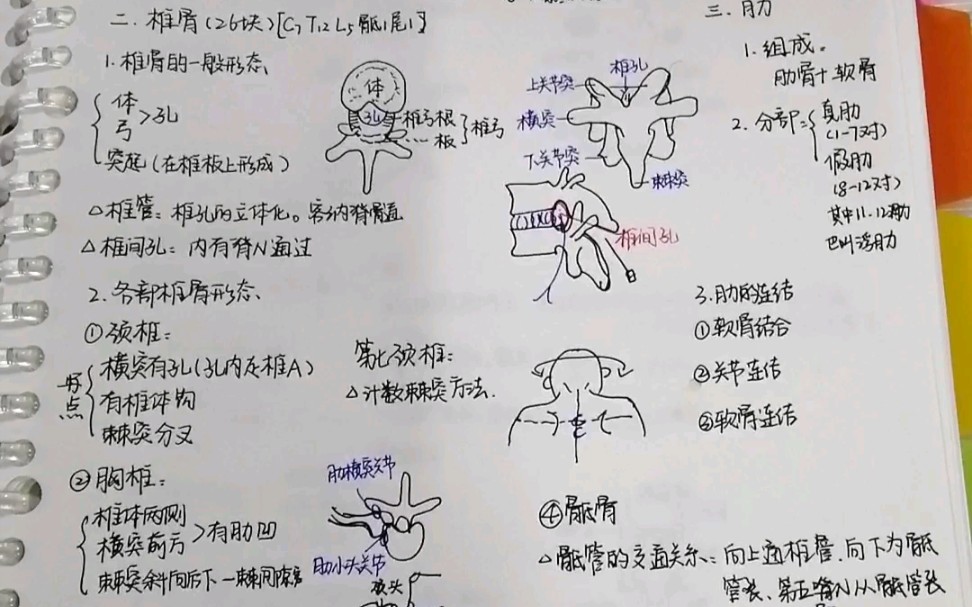 二. 椎骨(26块)[C7 T12 L5 骶1尾1]
1. 椎骨的一般形态
体
弓 >孔
突起(在椎板上形成)
体
孔
椎弓根
板
椎弓
上关节突
椎孔
横突
下关节突
棘突
△椎管: 椎孔的立体化。容纳脊髓
△椎间孔: 内有脊N通过
椎间孔
2. 各部椎骨形态
①颈椎:
特点
横突有孔(孔内走椎A)
有椎体钩
棘突分叉
第七颈椎:
△计数棘突方法.
②胸椎:
椎体两侧
横突前方 >有肋凹
棘突斜向后下→棘间隙窄
肋横突关节
肋小头关节
三. 肋
1. 组成。
肋骨+软骨
2. 分部=
真肋
(1-7对)
假肋
(8-12对)
其中11.12肋
又叫浮肋
3. 肋的连结
①软骨结合
②关节连结
③软骨连结
④骶骨
△骶管的交通关系: 向上通椎管. 向下为骶
管裂、第五脊N从骶管裂